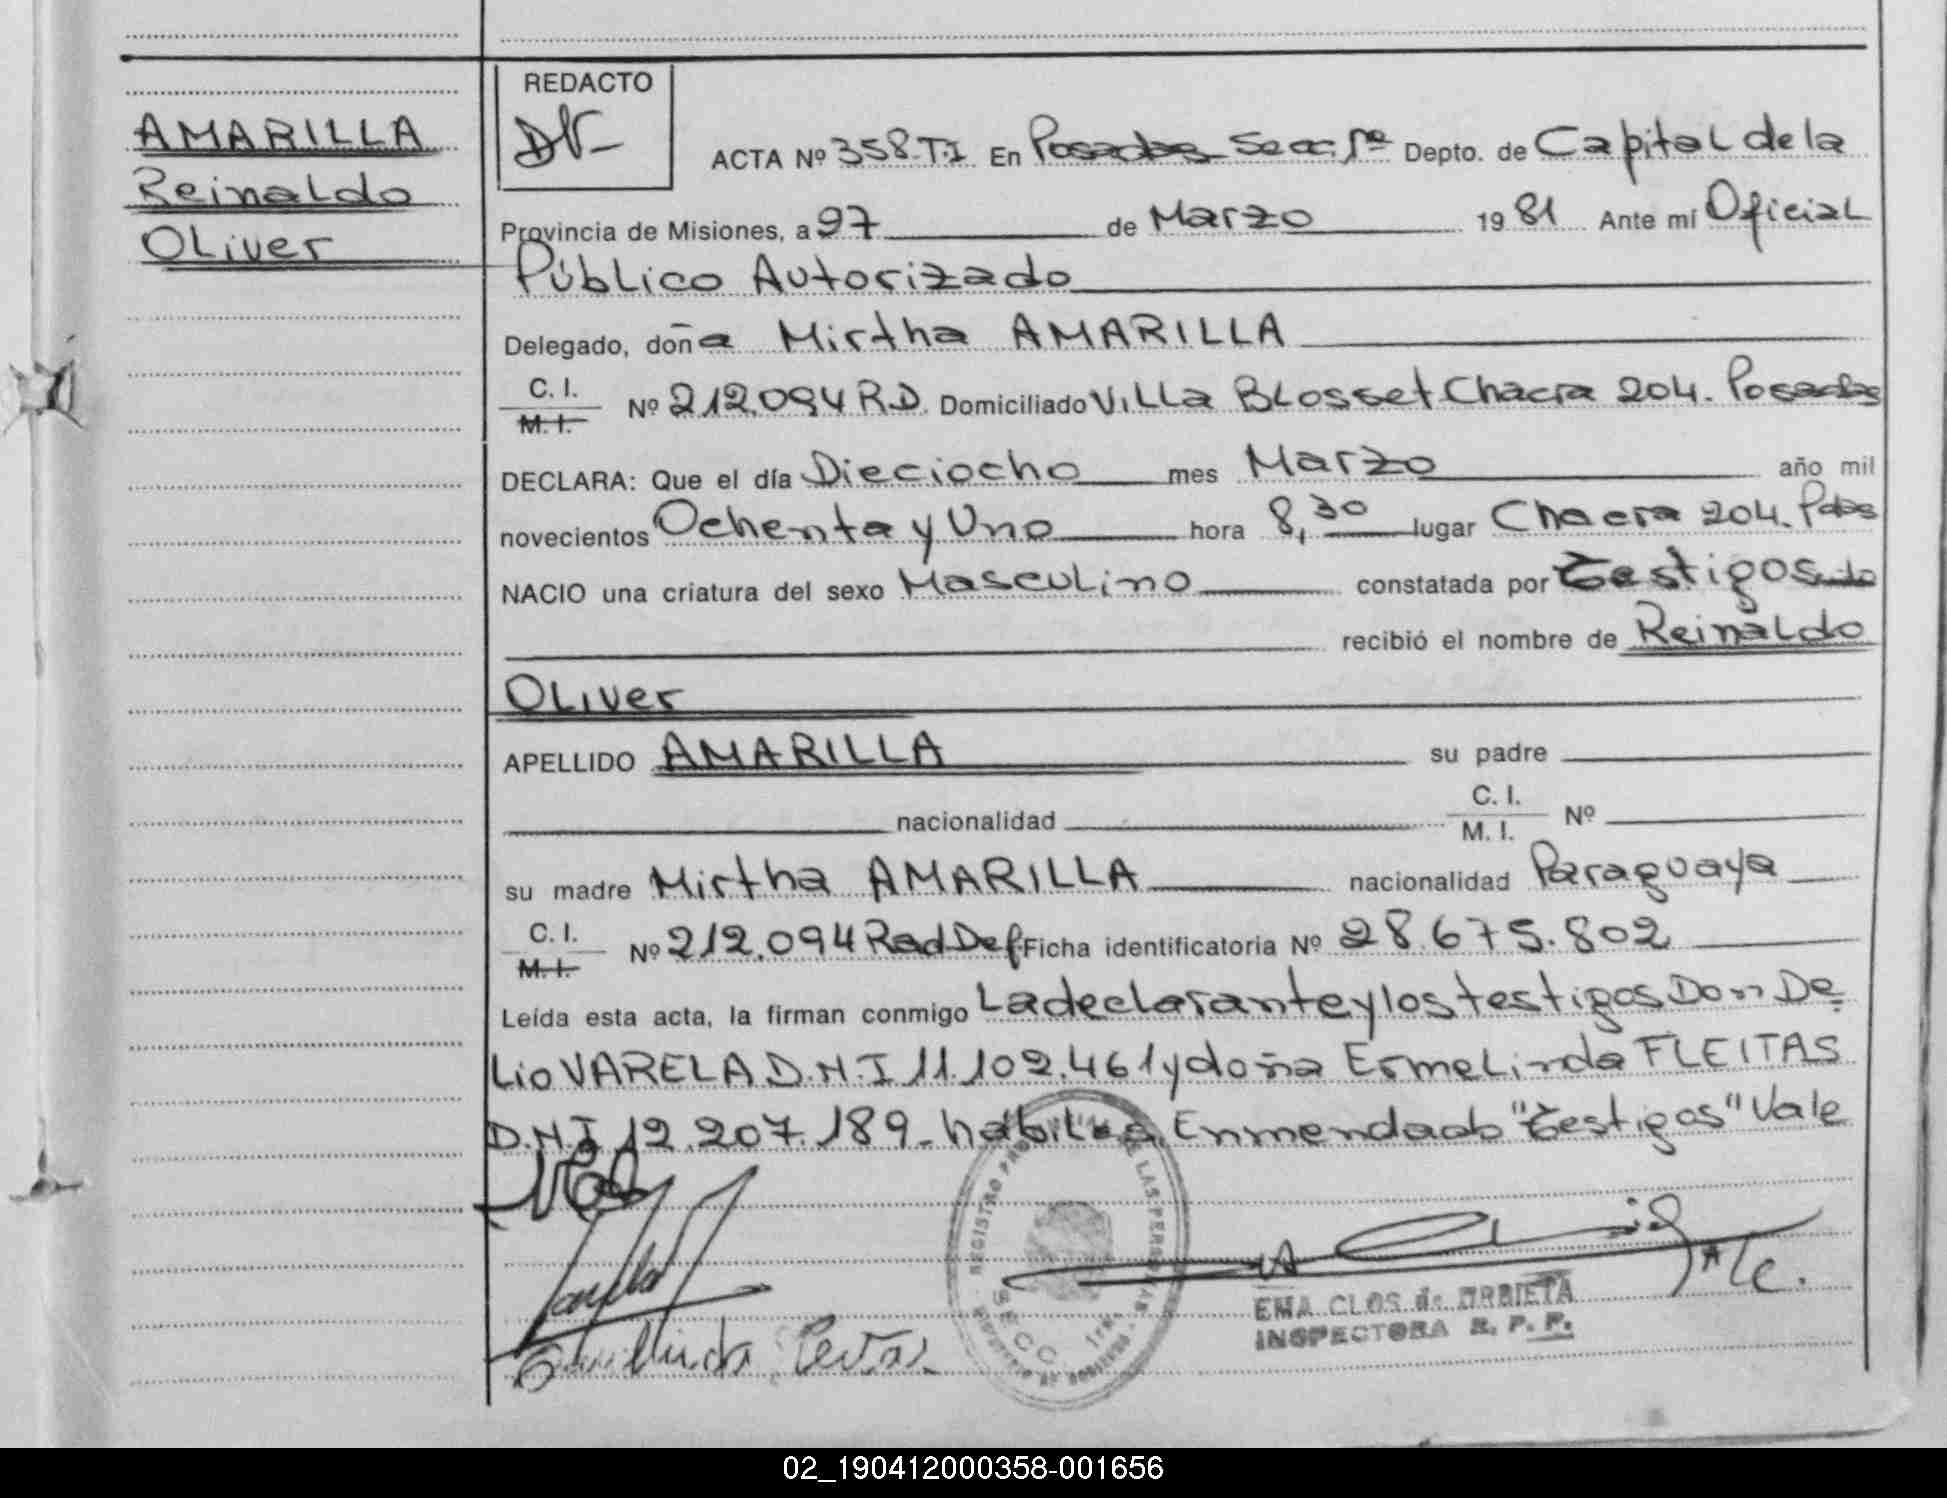 AMARILLA
Reinaldo
Oliver
REDACTO
ACTA Nº 358.T.I En Posadas Secc. 1ª Depto. de Capital de la
Provincia de Misiones, a 27 de Marzo 1981 Ante mí Oficial
Público Autorizado
Delegado, doña Mirtha AMARILLA
C. I.
M. I.
Nº 212.094 R.D. Domiciliado Villa Blosset Chacra 204. Posadas
DECLARA: Que el día Dieciocho mes Marzo año mil
novecientos Ochenta y Uno hora 8,30 lugar Chacra 204. Pdas
NACIO una criatura del sexo Masculino constatada por Testigos
recibió el nombre de Reinaldo
Oliver
APELLIDO AMARILLA su padre
nacionalidad C. I. M. I. Nº
su madre Mirtha AMARILLA nacionalidad Paraguaya
C. I.
M. I.
Nº 212.094 Rad Def. Ficha identificatoria Nº 28.675.802
Leída esta acta, la firman conmigo La declarante y los testigos Don De
Lio VARELA D.N.I 11.102.461 y doña Ermelinda FLEITAS
D.N.I 12.207.189_habiles. Enmendado "Testigos" Vale
REGISTRO DE LAS PERSONAS
SECC 1ra
EMA CLOS de URBIETA
INSPECTORA R. P. P.
02_190412000358-001656